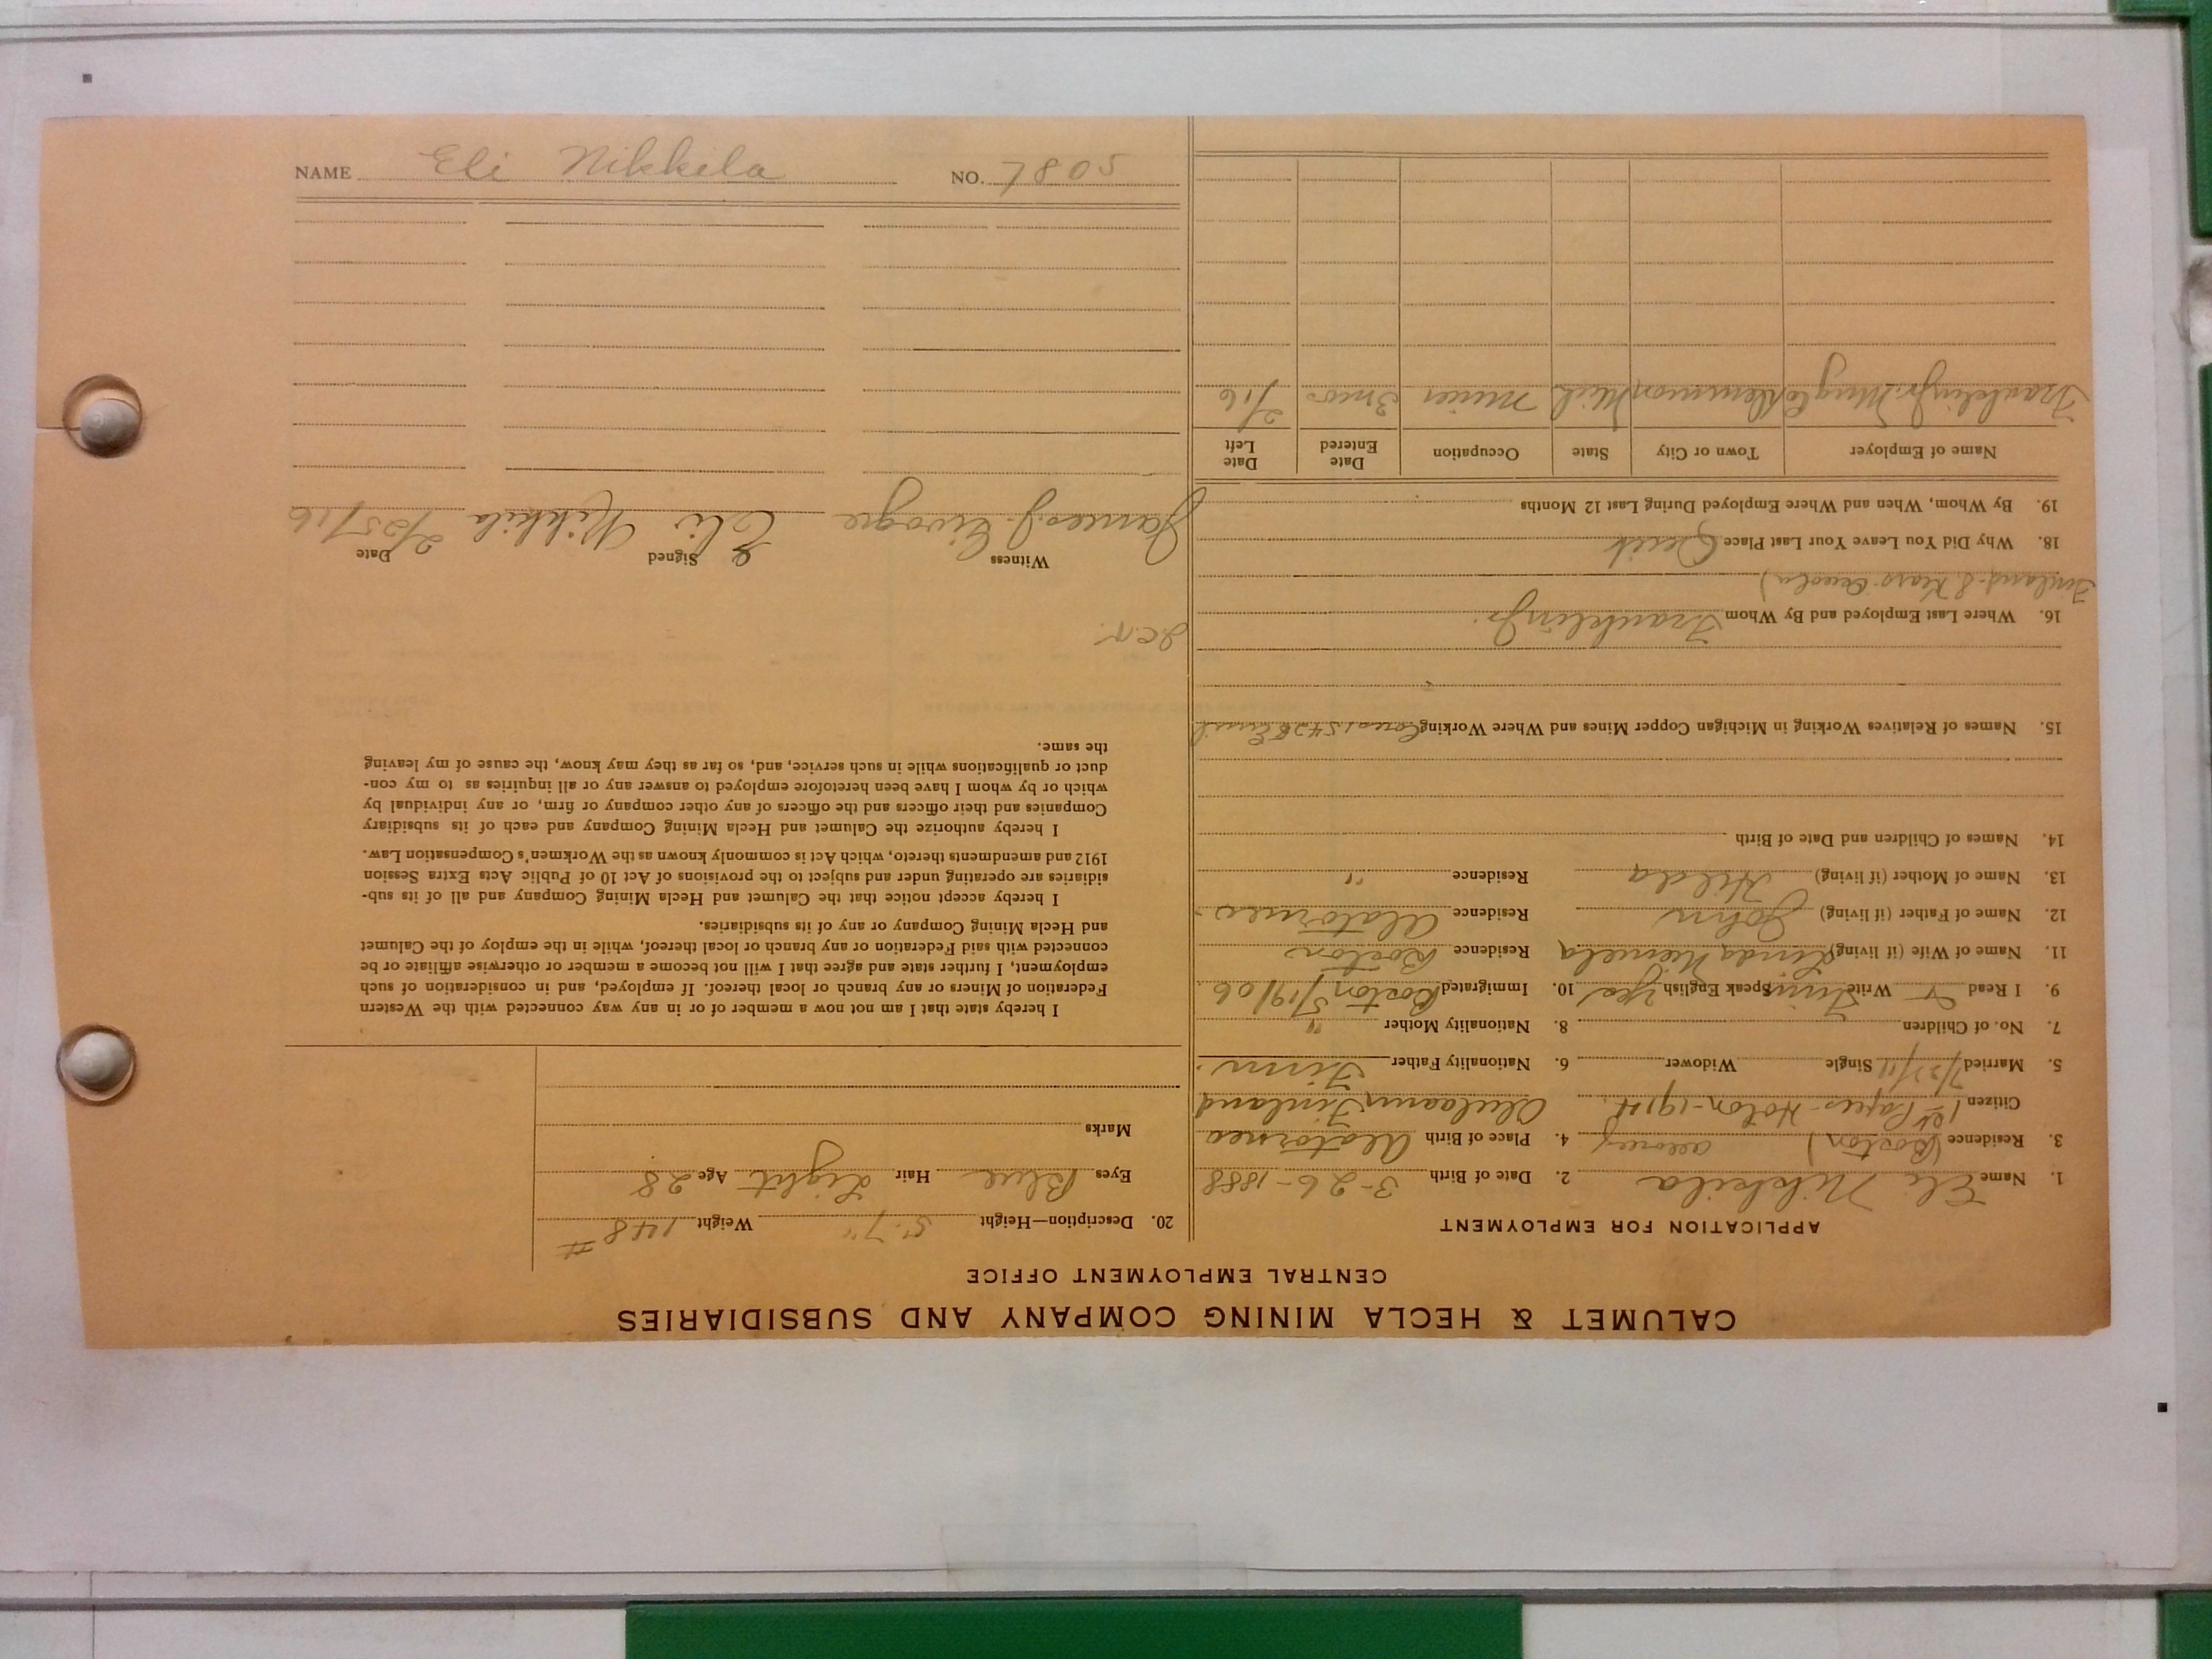 NAME Eli Nikkila NO. 7805
CALUMET & HECLA MINING COMPANY AND SUBSIDIARIES
CENTRAL EMPLOYMENT OFFICE
APPLICATION FOR EMPLOYMENT
1. Name Eli Nikkila 2. Date of Birth 3-26-1888
3. Residence (Boston) 4. Place of Birth Alatornea
Citizen 1st Papers - Hoton - 1914. Finland
5. Married 7/27/11 Single Widower 6. Nationality Father Finn.
7. No. of Children 8. Nationality Mother "
9. I Read Write Finn Speak English Yes 10. Immigrated Boston 5/19/06
11. Name of Wife (if living) Linda Niemela Residence Boston
12. Name of Father (if living) John Residence Alatornea
13. Name of Mother (if living) Hilda Residence "
14. Names of Children and Date of Birth
15. Names of Relatives Working in Michigan Copper Mines and Where Working Emil
16. Where Last Employed and By Whom Franklin Jr.
Finland - 8 Years
18. Why Did You Leave Your Last Place Quit
19. By Whom, When and Where Employed During Last 12 Months
Name of Employer Town or City State Occupation Date Entered Date Left
Franklin Jr. Mng Co Mich Miner 3 mos 2/16
20. Description—Height 5' 7" Weight 148 #
Eyes Blue Hair Light Age 28
Marks
I hereby state that I am not now a member of or in any way connected with the Western
Federation of Miners or any branch or local thereof. If employed, and in consideration of such
employment, I further state and agree that I will not become a member or otherwise affiliate or be
connected with said Federation or any branch or local thereof, while in the employ of the Calumet
and Hecla Mining Company or any of its subsidiaries.
I hereby accept notice that the Calumet and Hecla Mining Company and all of its sub-
sidiaries are operating under and subject to the provisions of Act 10 of Public Acts Extra Session
1912 and amendments thereto, which Act is commonly known as the Workmen's Compensation Law.
I hereby authorize the Calumet and Hecla Mining Company and each of its subsidiary
Companies and their officers and the officers of any other company or firm, or any individual by
which or by whom I have been heretofore employed to answer any or all inquiries as to my con-
duct or qualifications while in such service, and, so far as they may know, the cause of my leaving
the same.
Witness Signed Date
James J. Eli Nikkila 2/25/16